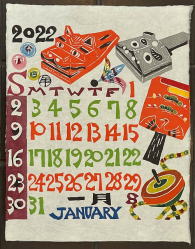 2022
S M T W T F 1
2 3 4 5 6 7 8
9 10 11 12 13 14 15
16 17 18 19 20 21 22
23 24 25 26 27 28 29
30 31 一月
JANUARY